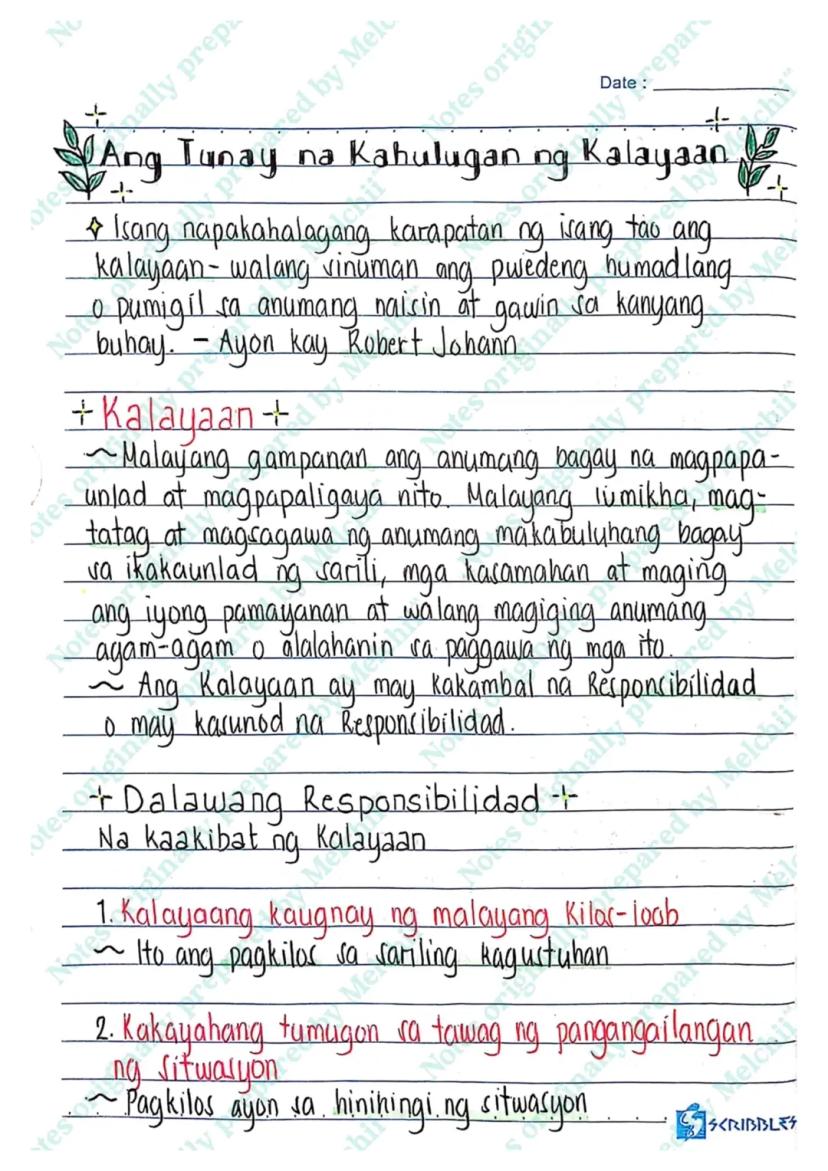 Date :
Ang Tunay na Kahulugan ng Kalayaan
Isang napakahalagang karapatan ng isang tao ang
kalayaan- walang sinuman ang pwedeng humadlang
o pumigil sa anumang naisin at gawin sa kanyang
buhay. - Ayon kay Robert Johann
+ Kalayaan +
~ Malayang gampanan ang anumang bagay na magpapa-
unlad at magpapaligaya nito. Malayang lumikha, mag-
tatag at magsagawa ng anumang makabuluhang bagay
sa ikakaunlad ng sarili, mga kasamahan at maging
ang iyong pamayanan at walang magiging anumang
agam-agam o alalahanin sa paggawa ng mga ito.
~ Ang Kalayaan ay may kakambal na Responsibilidad
o may kasunod na Responsibilidad.
+ Dalawang Responsibilidad +
Na kaakibat ng Kalayaan
1. Kalayaang kaugnay ng malayang Kilos-loob
~ Ito ang pagkilos sa sariling kagustuhan
2. Kakayahang tumugon sa tawag ng pangangailangan
ng sitwasyon
~ Pagkilos ayon sa hinihingi ng sitwasyon
SCRIBBLES
Notes originally prepared by Melchii